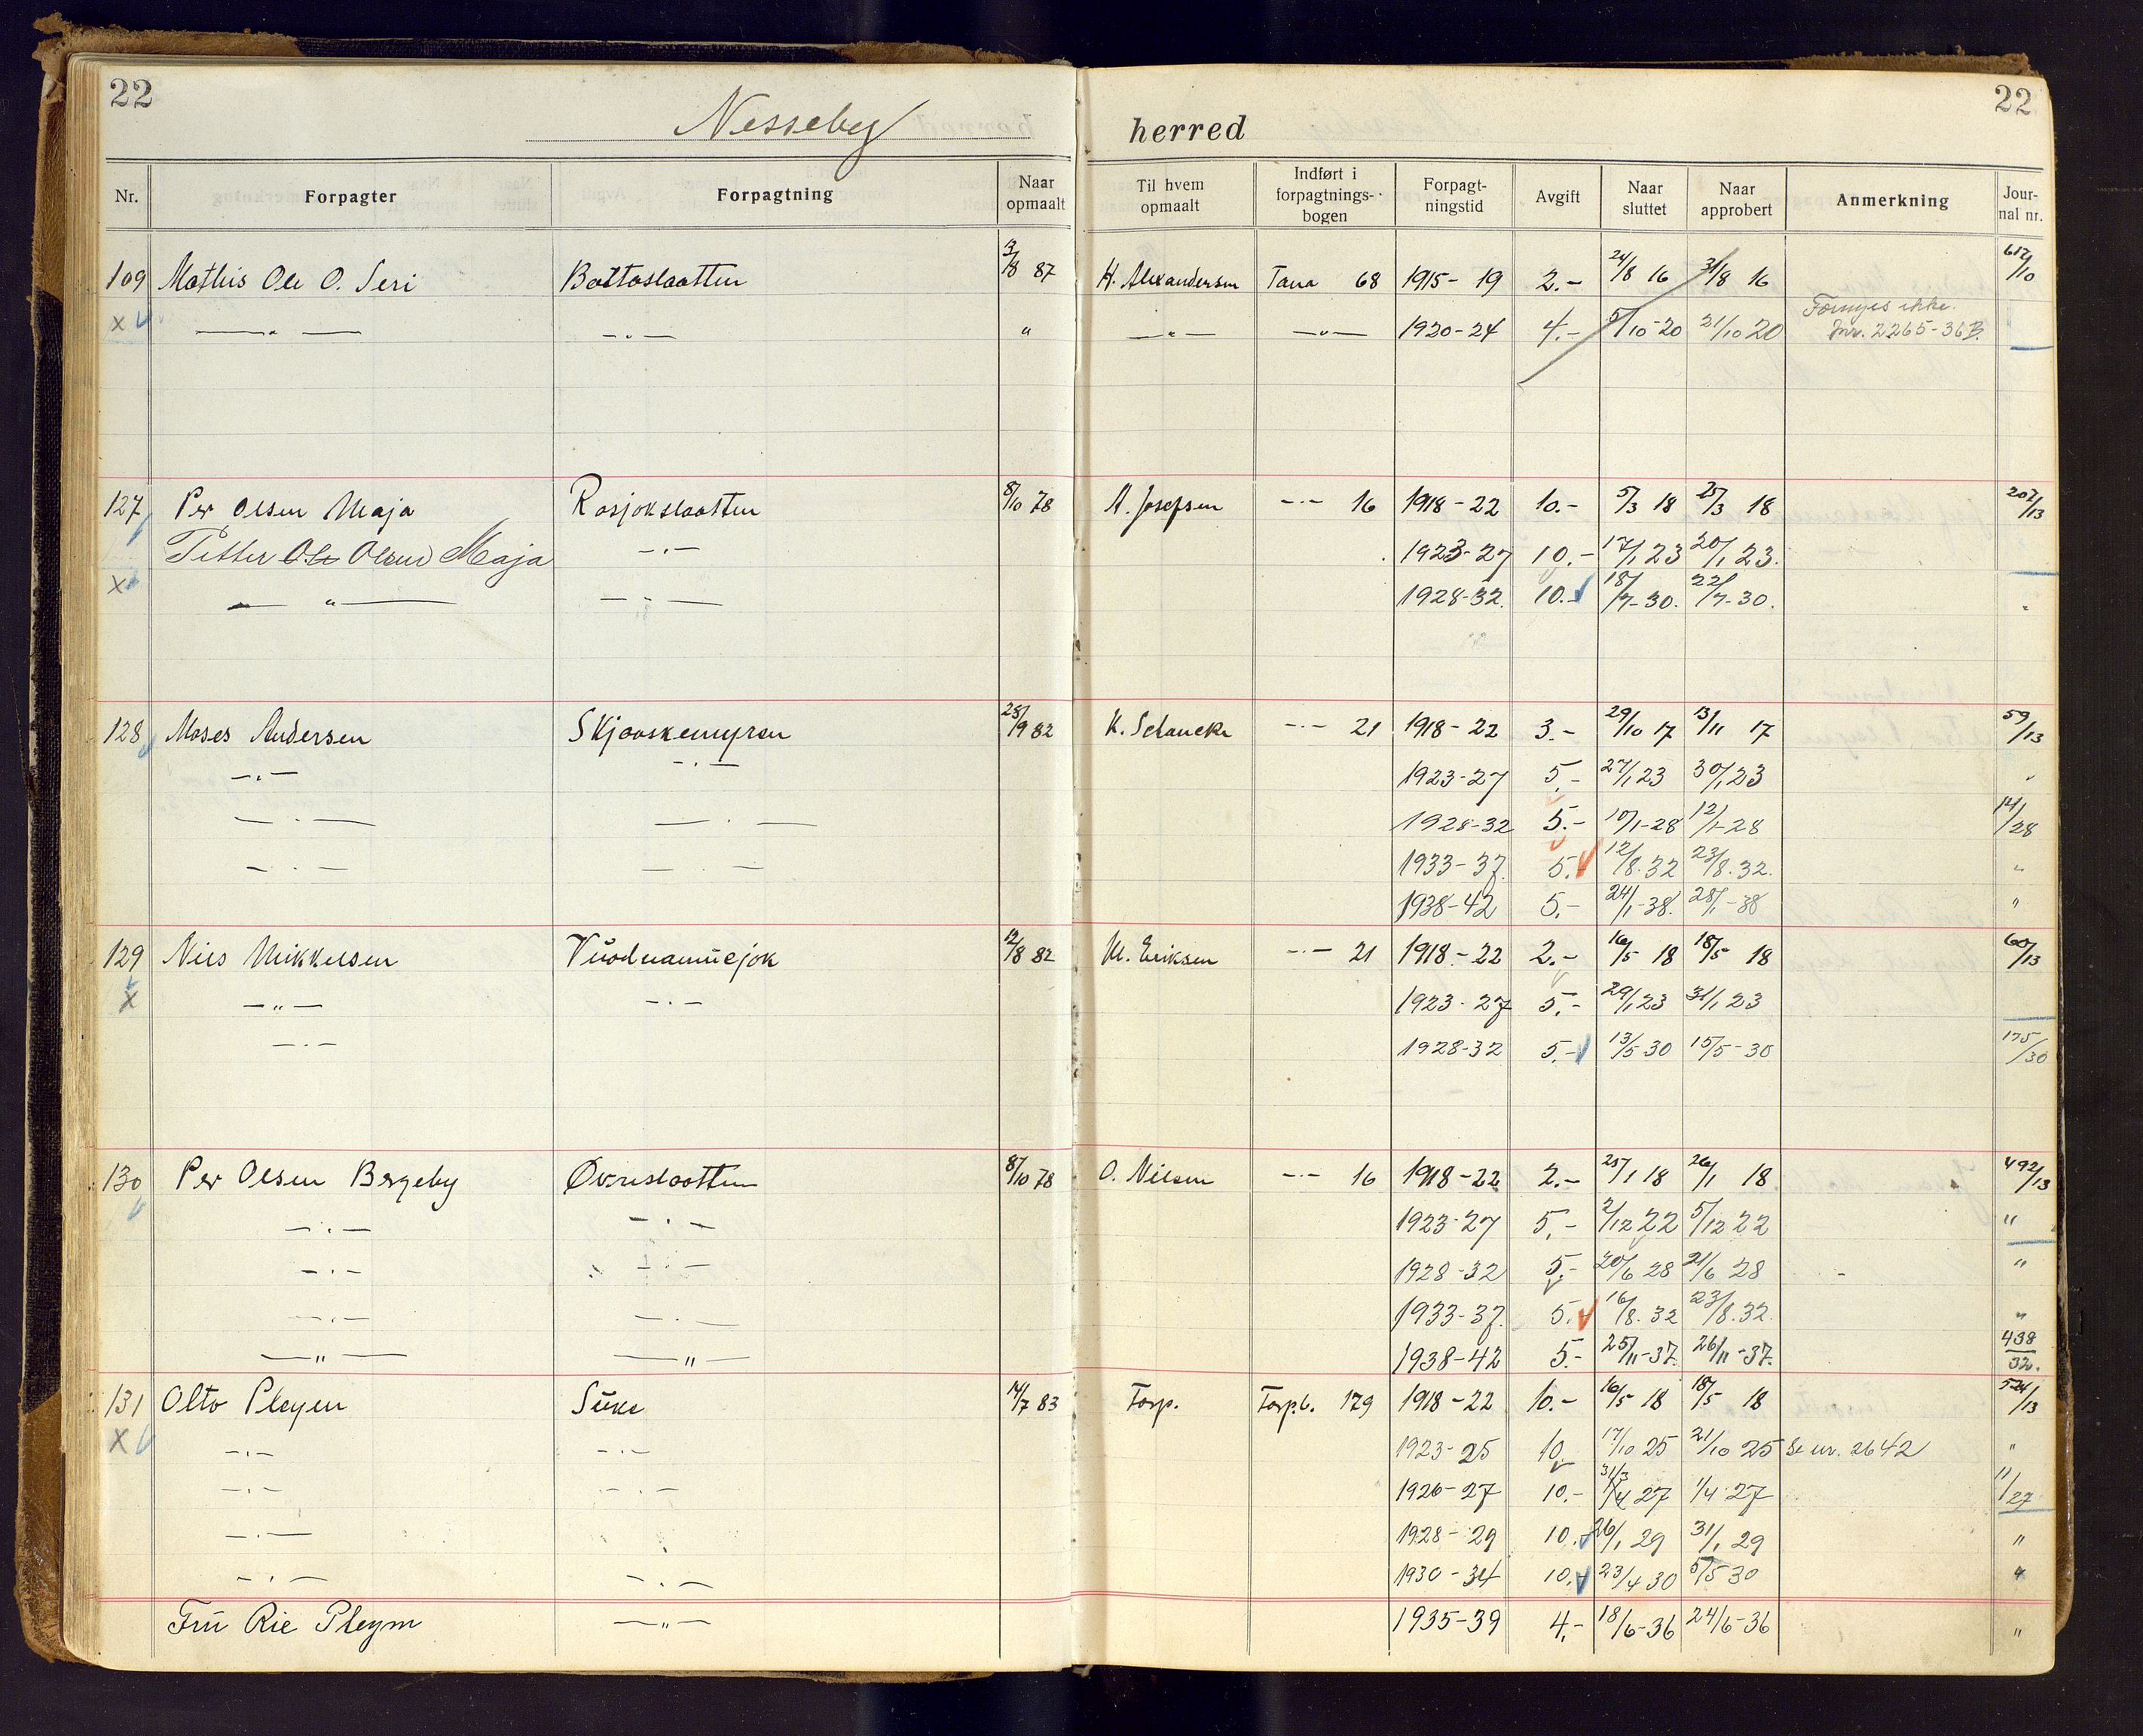 22
Nesseby herred
22
Nr. Forpagter Forpagtning Naar opmaalt Til hvem opmaalt Indført i forpagtnings-bogen Forpagt-ningstid Avgift Naar sluttet Naar approbert Anmerkning Jour-nal nr.
109 Mathis Ole O. Seri Battoslaatten 87 H. Alexandersen Tana 68 1915-19 2.- 24/8 16 31/8 16 612/10
x —"— —"— " —"— —"— 1920-24 4.- 5/10-20 21/10 20 Fornyes ikke.
Jnr. 2265-36 B.
127 Per Olsen Maja Rosjokslaatten 8/10 78 A. Josefsen -"- 16 1918-22 10.- 5/3 18 25/3 18 202/13
Petter Ole Olsen Maja -"- 1923-27 10.- 17/1 23 20/1 23.
x —"— —"— 1928-32. 10.- 18/7-30. 22/7-30. "
128 Moses Andersen Skjaaskemyren 25/9 82 K. Schancke -"- 21 1918-22 3.- 29/10 17 13/11 17 59/13
-"- -"- 1923-27 5.- 27/1 23 30/1 23 "
—"— —"— 1928-32 5.- 10/1-28 12/1-28 14/28
-"- -"- 1933-37. 5. 12/8.32 23/8.32. "
1938-42 5.- 24/1-38. 28/1-38 "
129 Nils Mikkelsen 12/8 82 M. Eriksen -"- 21 1918-22 2.- 16/5 18 18/5 18 60/13
x -"- -"- 1923-27 5.- 29/1 23 31/1 23
-"- 1928-32 5.- 13/5 30 15/5-30 175/30
130 Per Olsen Bergeby Øvreslaatten 8/10 78 O. Nilsen -"- 16 1918-22 2.- 25/1 18 26/1 18 492/13
-"- -"- 1923-27 5.- 2/12 22 5/12 22 "
-"- -"- 1928-32 5.- 20/6 28 21/6 28 "
-"- -"- 1933-37. 5. 16/8.32 23/8.32. "
—"— —"— 1938-42 5.- 25/11-37. 26/11-37. 438/32.
131 Olto Pleym 14/7 83 Forp. Forp.b. 179 1918-22 10.- 16/5 18 18/5 18 524/13
x -"- -"- 1923-25 10. 17/10 25 21/10 25 Se nr. 2642 "
-"- -"- 1926-27 10.- 31/3 27 1/4 27 11/27
-"- " 1928-29 10. 26/1 29 31/1 29 "
-"- -"- 1930-34 10. 23/4 30 5/5 30 "
Frü Rie Pleym —"— 1935-39 4.- 18/6-36 24/6-36 "